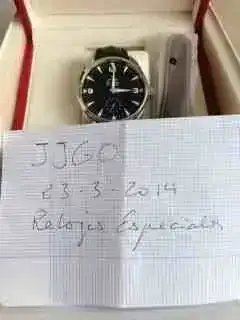 JJGO
23-3-2014
Relojes Especiales